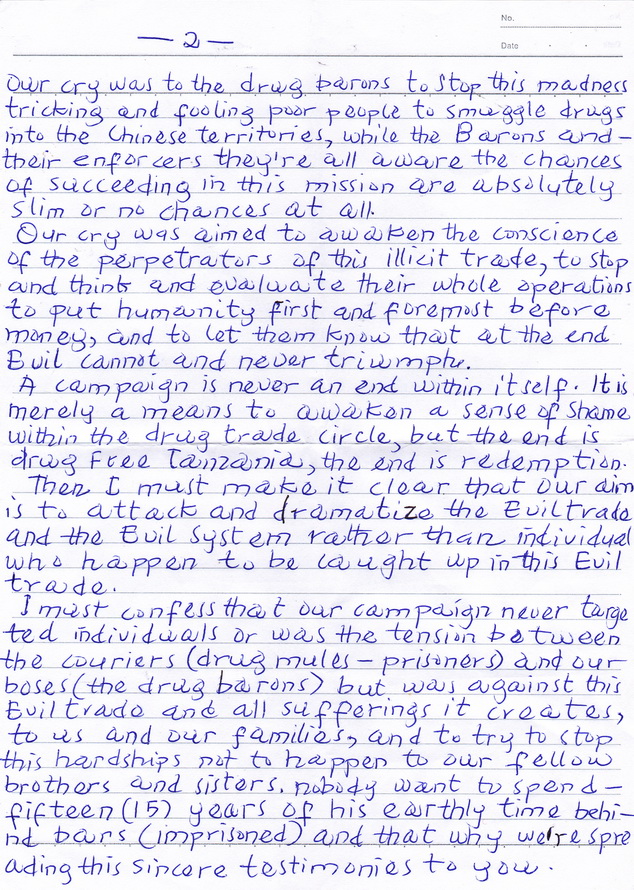 No.
— 2 —
Date
Our cry was to the drug barons to stop this madness
tricking and fooling poor people to smuggle drugs
into the Chinese territories, while the Barons and-
their enforcers they're all aware the chances
of succeeding in this mission are absolutely
slim or no chances at all.
Our cry was aimed to awaken the conscience
of the perpetrators of this illicit trade, to stop
and think and evaluate their whole operations
to put humanity first and foremost before
money, and to let them know that at the end
Evil cannot and never triwmph.
A campaign is never an end within itself. It is
merely a means to awaken a sense of shame
within the drug trade circle, but the end is
drug Free Tanzania, the end is redemption.
Then I must make it clear that our aim
is to attack and dramatize the Evil trade
and the Evil System rather than individual
who happen to be caught up in this Evil
trade.
I must confess that our campaign never targe
ted individuals or was the tension between
the couriers (drug mules - prisoners) and our
boses (the drug barons) but was against this
Evil trade and all sufferings it creates,
to us and our families, and to try to stop
this hardships not to happen to our fellow
brothers and sisters. nobody want to spend -
fifteen (15) years of his earthly time behi-
nd bars (imprisoned) and that why we're spre
ading this sincere testimonies to you.